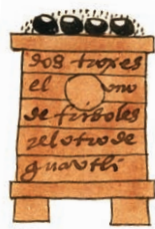 dos troxes
el uno
de frisoles
yelotro de
guautli